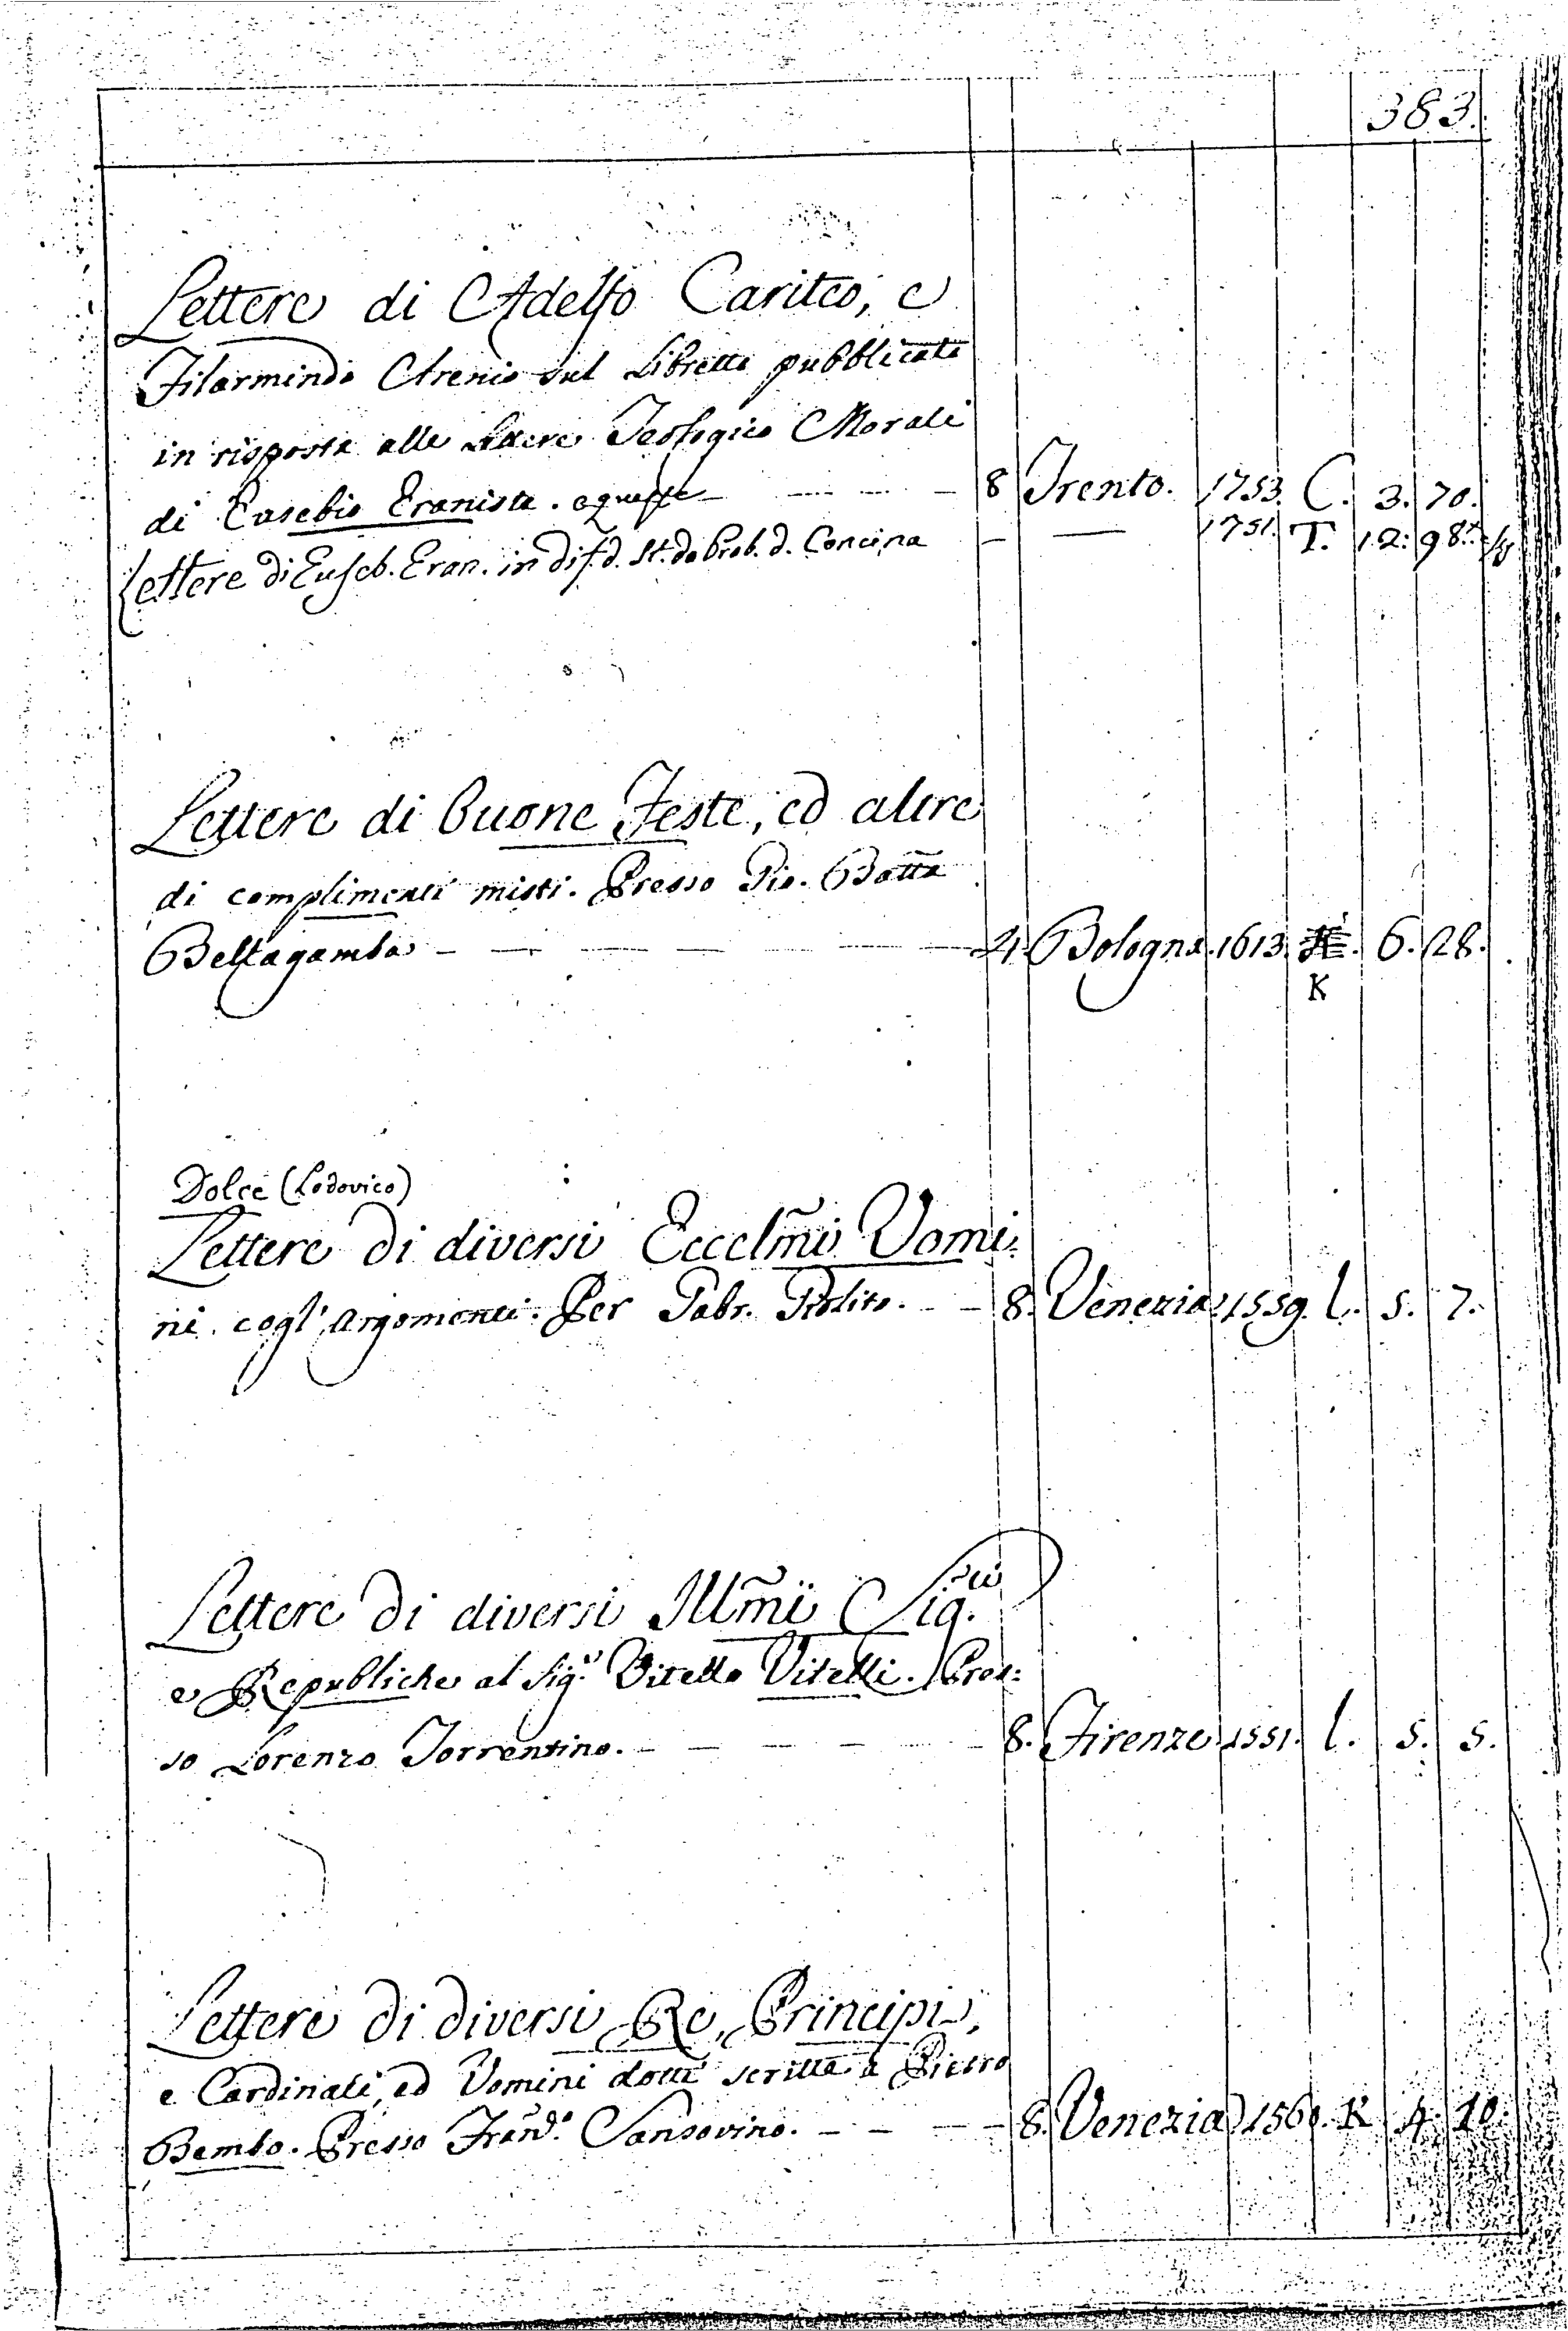 383.
Lettere di Adelfo Cariteo, e
Filarmindo Arenio sul Libretto pubblicato
in risposta alle Lettere Teologico Morali
di Eusebio Eraniste. — 8 Trento. 1753. C. 3. 70.
Lettere di Euseb. Eran. in dif. d. St. do Prob. d. Concina — — 1751. T. 12. 98.
Lettere di buone Feste, ed altre
di complimenti misti. Presso Gio. Batta
Bellagamba — — — — — 4. Bologna. 1613. 6. 28.
K
Dolce (Lodovico)
Lettere di diversi Eccelmi Uomi:
ni. cogl' Argomenti. Per Gabr. Giolito. — — 8. Venezia 1559. l. 5. 7.
Lettere di diversi Illmi Sigri
e Republiche al Sigr Vitello Vitelli. Pres:
so Lorenzo Torrentino. — — — — — 8. Firenze 1551. l. 5. 5.
Lettere di diversi Re, Principi,
e Cardinali, ed Uomini dotti scritte a Pietro
Bembo. Presso Franc.o Sansovino. — — — — 8. Venezia 1560. K 4. 10.